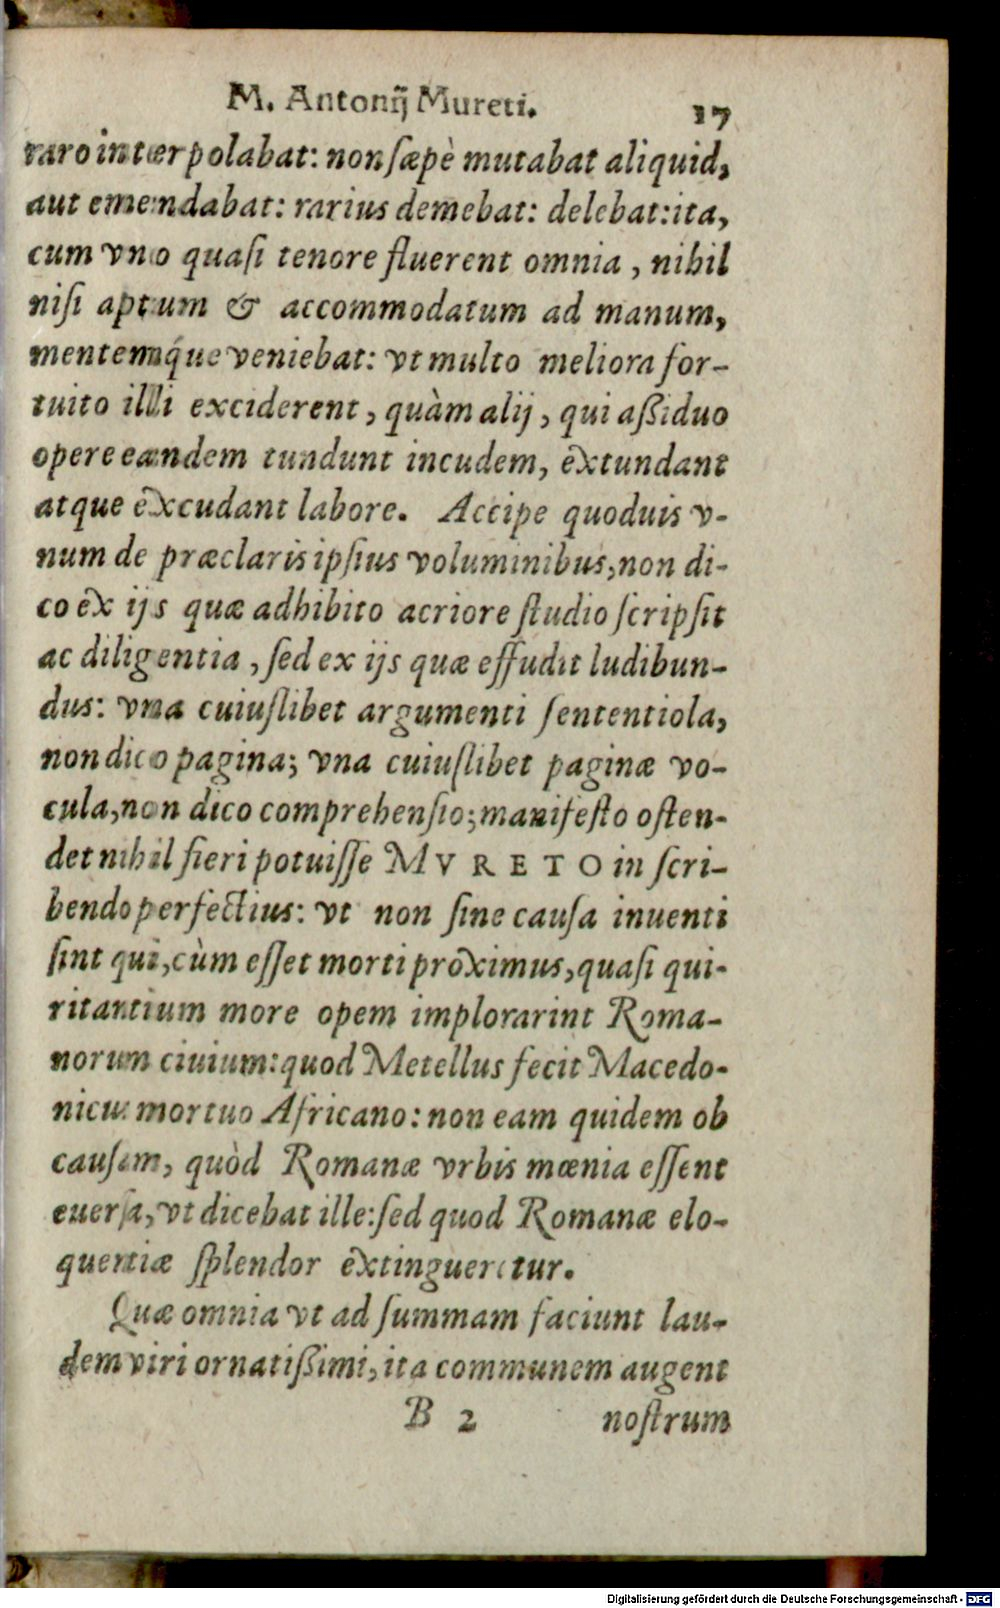 M. Antonij Mureti. 17
raro interpolabat: non sæpè mutabat aliquid,
aut emendabat: rarius demebat: delebat: ita,
cum vno quasi tenore fluerent omnia, nihil
nisi aptum & accommodatum ad manum,
mentemq́ue veniebat: vt multo meliora for-
tuito illi exciderent, quàm alij, qui aßiduo
opere eandem tundunt incudem, extundant
atque excudant labore. Accipe quoduis v-
num de præclaris ipsius voluminibus, non di-
co ex ijs quæ adhibito acriore studio scripsit
ac diligentia, sed ex ijs quæ effudit ludibun-
dus: vna cuiuslibet argumenti sententiola,
non dico pagina; vna cuiuslibet paginæ vo-
cula, non dico comprehensio; manifesto osten-
det nihil fieri potuisse MVRETO in scri-
bendo perfectius: vt non sine causa inuenti
sint qui, cùm esset morti proximus, quasi qui-
ritantium more opem implorarint Roma-
norum ciuium: quod Metellus fecit Macedo-
nicus mortuo Africano: non eam quidem ob
causam, quòd Romanæ vrbis mœnia essent
euersa, vt dicebat ille: sed quod Romanæ elo-
quentiæ splendor extingueretur.
Quæ omnia vt ad summam faciunt lau-
dem viri ornatißimi, ita communem augent
B 2 nostrum
Digitalisierung gefördert durch die Deutsche Forschungsgemeinschaft - DFG